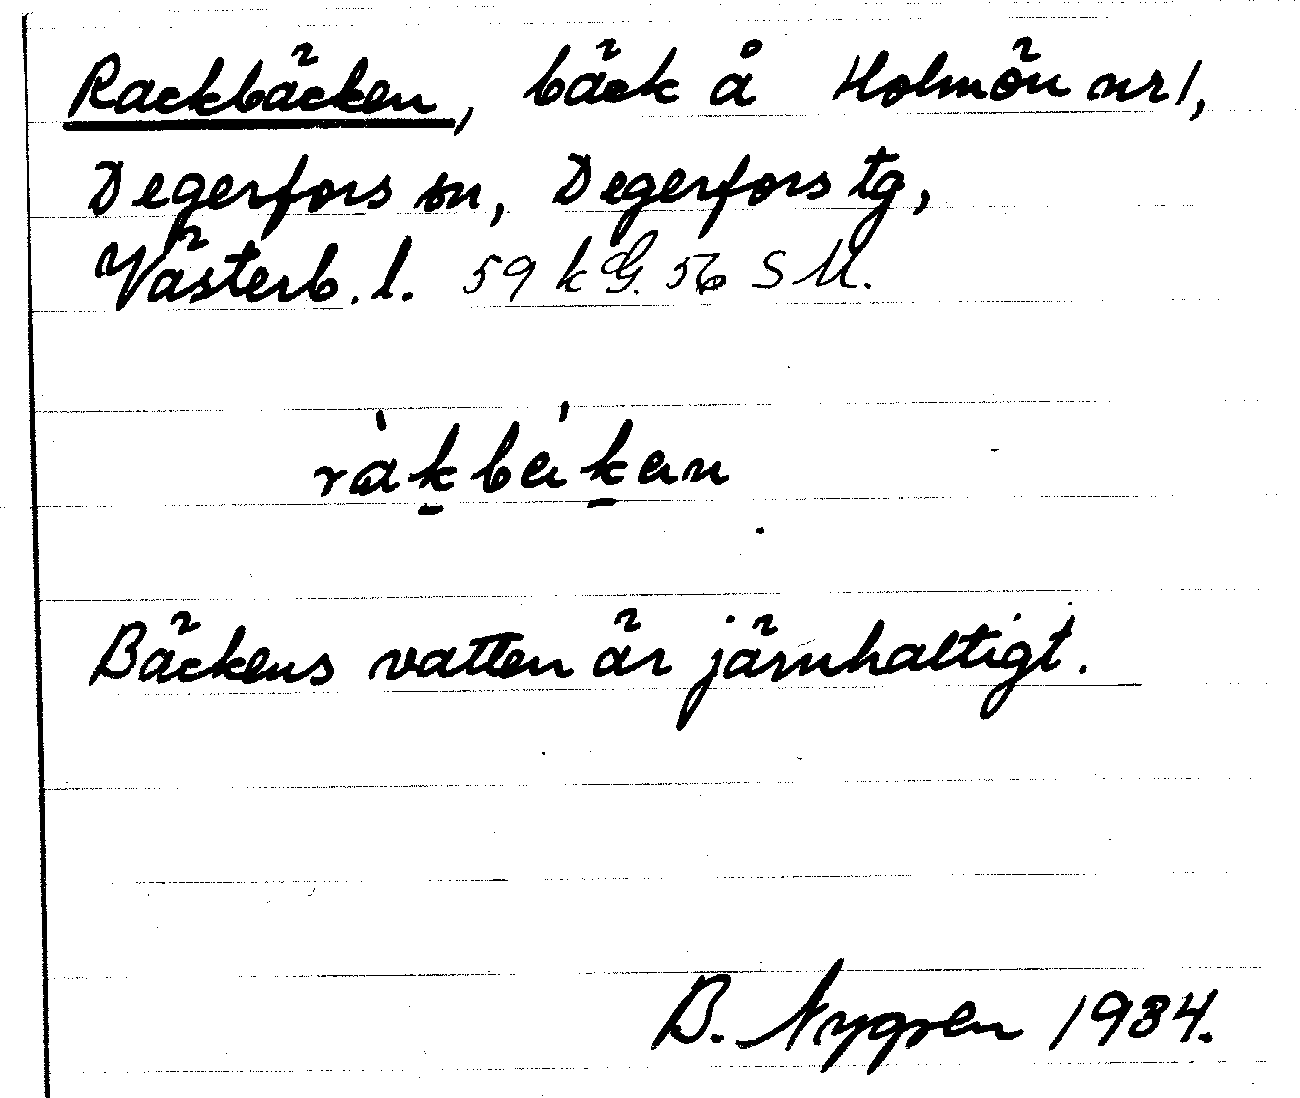 Rackbäcken, bäck å Holmön nr 1,
Degerfors sn, Degerfors tg,
Västerb. l. 59 k G. 56 S M.
ràk̠béik̠en
Bäckens vatten är järnhaltigt.
B. Nygren 1934.